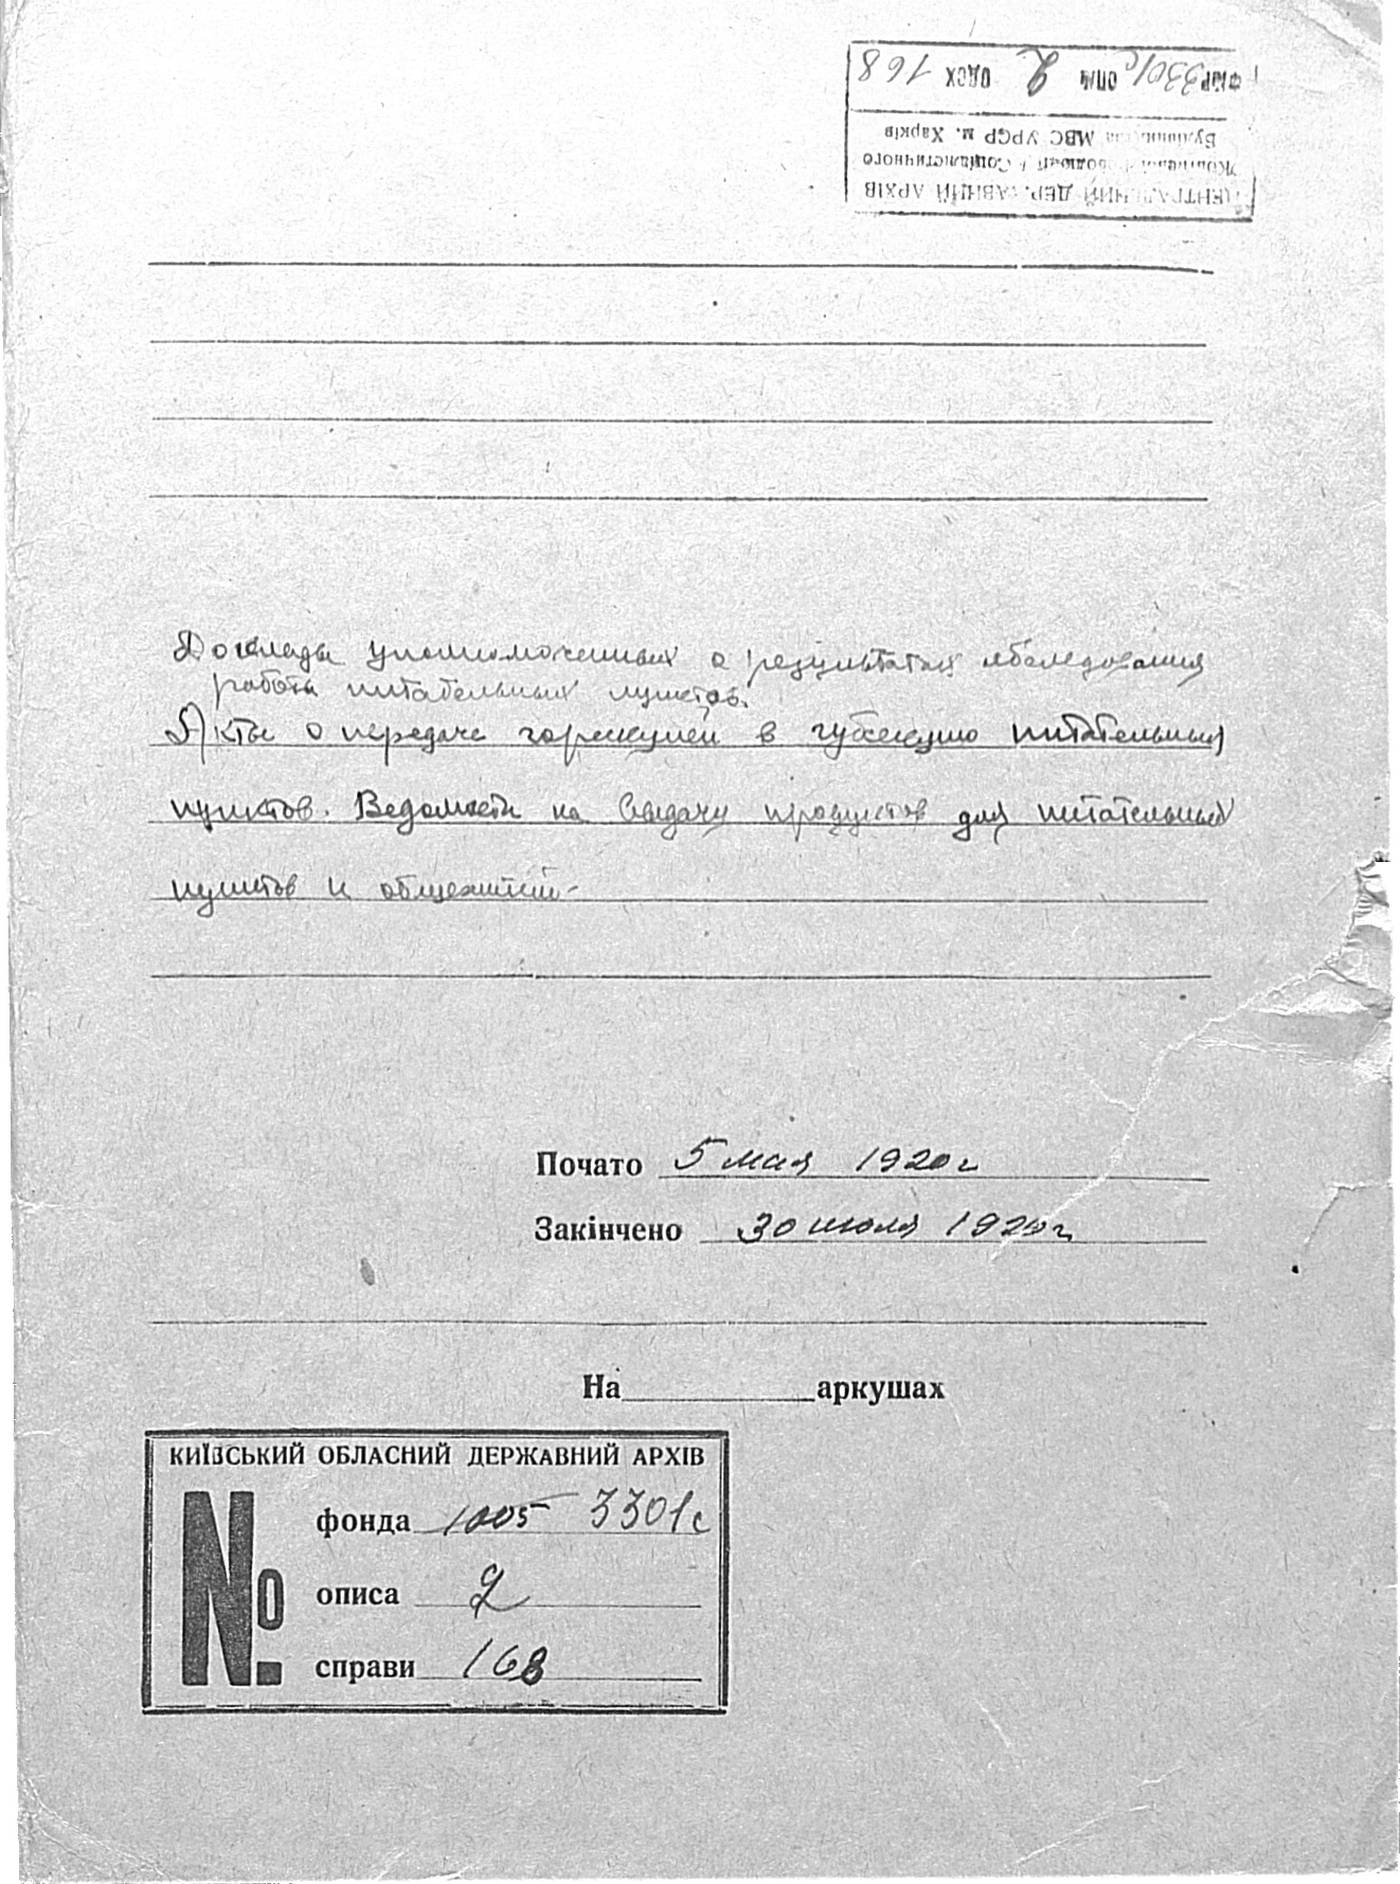 ЦЕНТРАЛЬНИЙ ДЕРЖАВНИЙ АРХІВ
Жовтневої Революції і Соціалістичного
Будівництва МВС УРСР м. Харків
ФОНД 3301с ОПИС 2 ОДСХ 168
Доклады уполномоченных о результатах обследования
работы питательных пунктов.
Акты о передаче горсекцией в губсекцию питательных
пунктов. Ведомости на выдачу продуктов для питательных
пунктов и общежитий
Почато 5 мая 1920 г
Закінчено 30 июля 1920 г.
На аркушах
КИЇВСЬКИЙ ОБЛАСНИЙ ДЕРЖАВНИЙ АРХІВ
№
фонда 1005 3301с
описа 2
справи 168